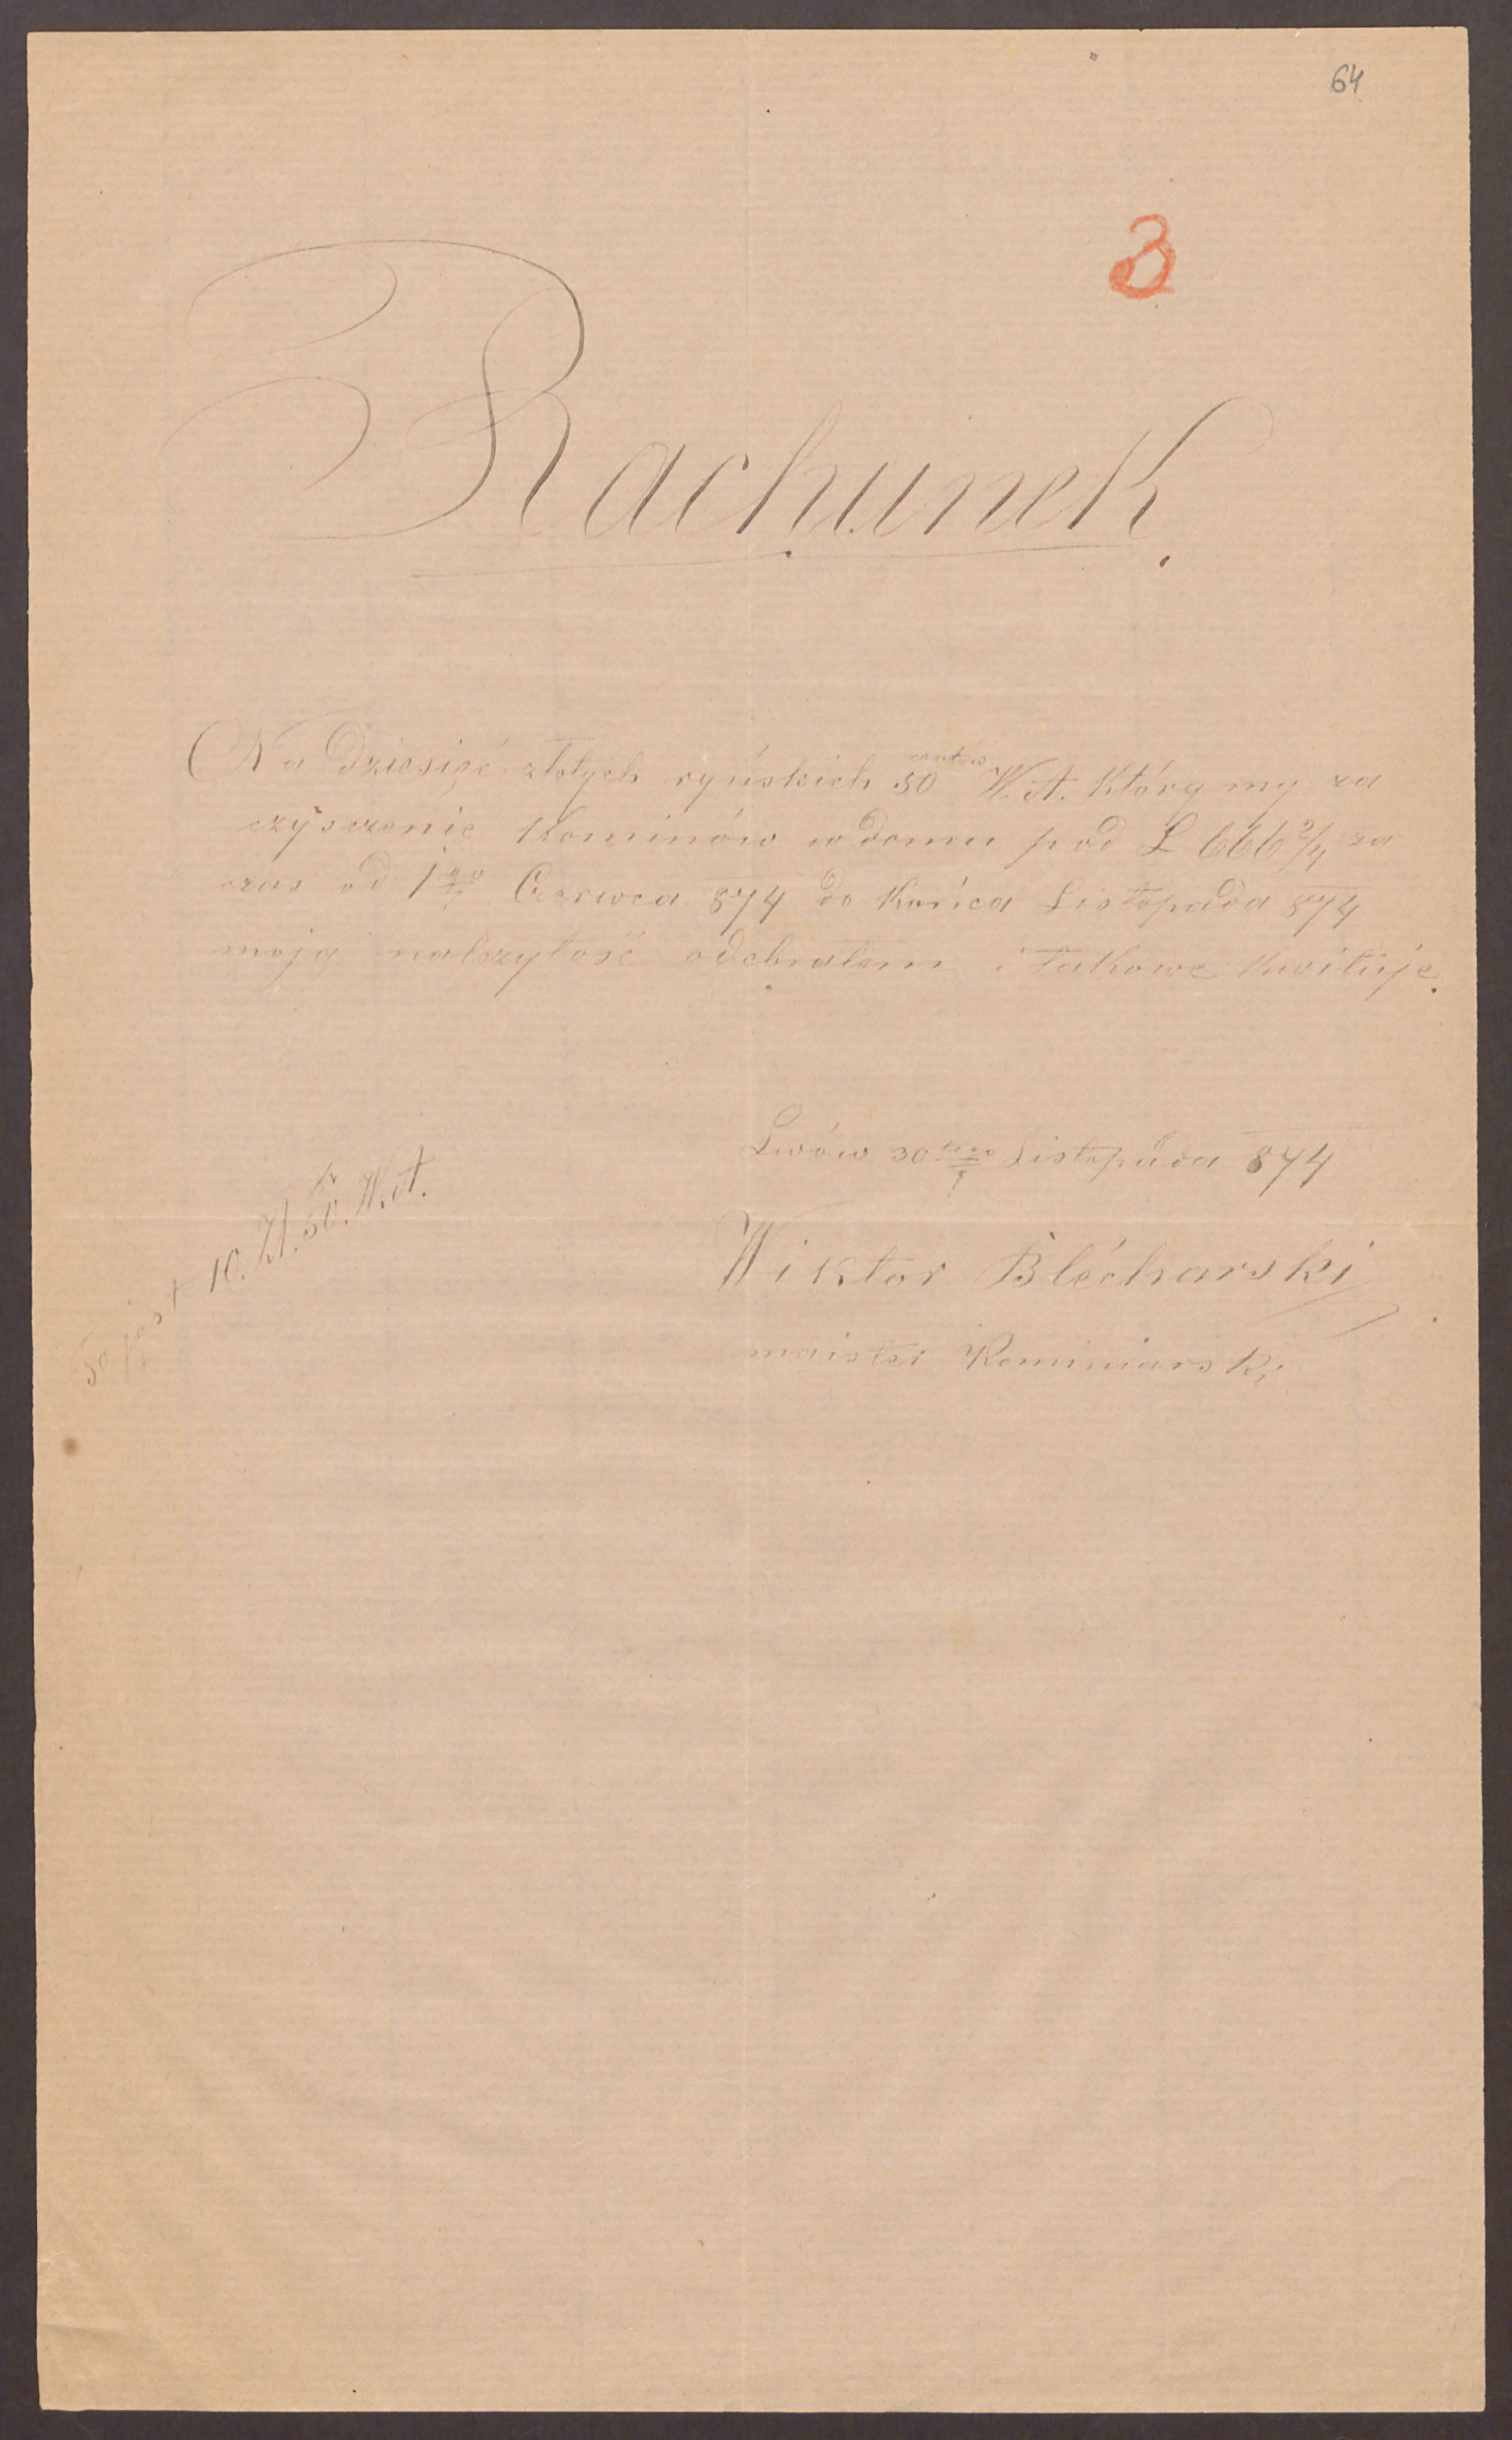 64
3
Rachunek.
Na Dziesięć złotych ryńskich 50 centów W. A. który my za
czysczenie Kominów w domu pod L 666 2/4 za
czas od 1go Czerwca 874 do Końca Listopada 874
moją nalezytość odebrałem i takowe kwituje.
Lwów 30tego Listopada 874
Wiktor Blécharski
maister Kominiarski
To jest 10. Zł. 50 kr. W. A.